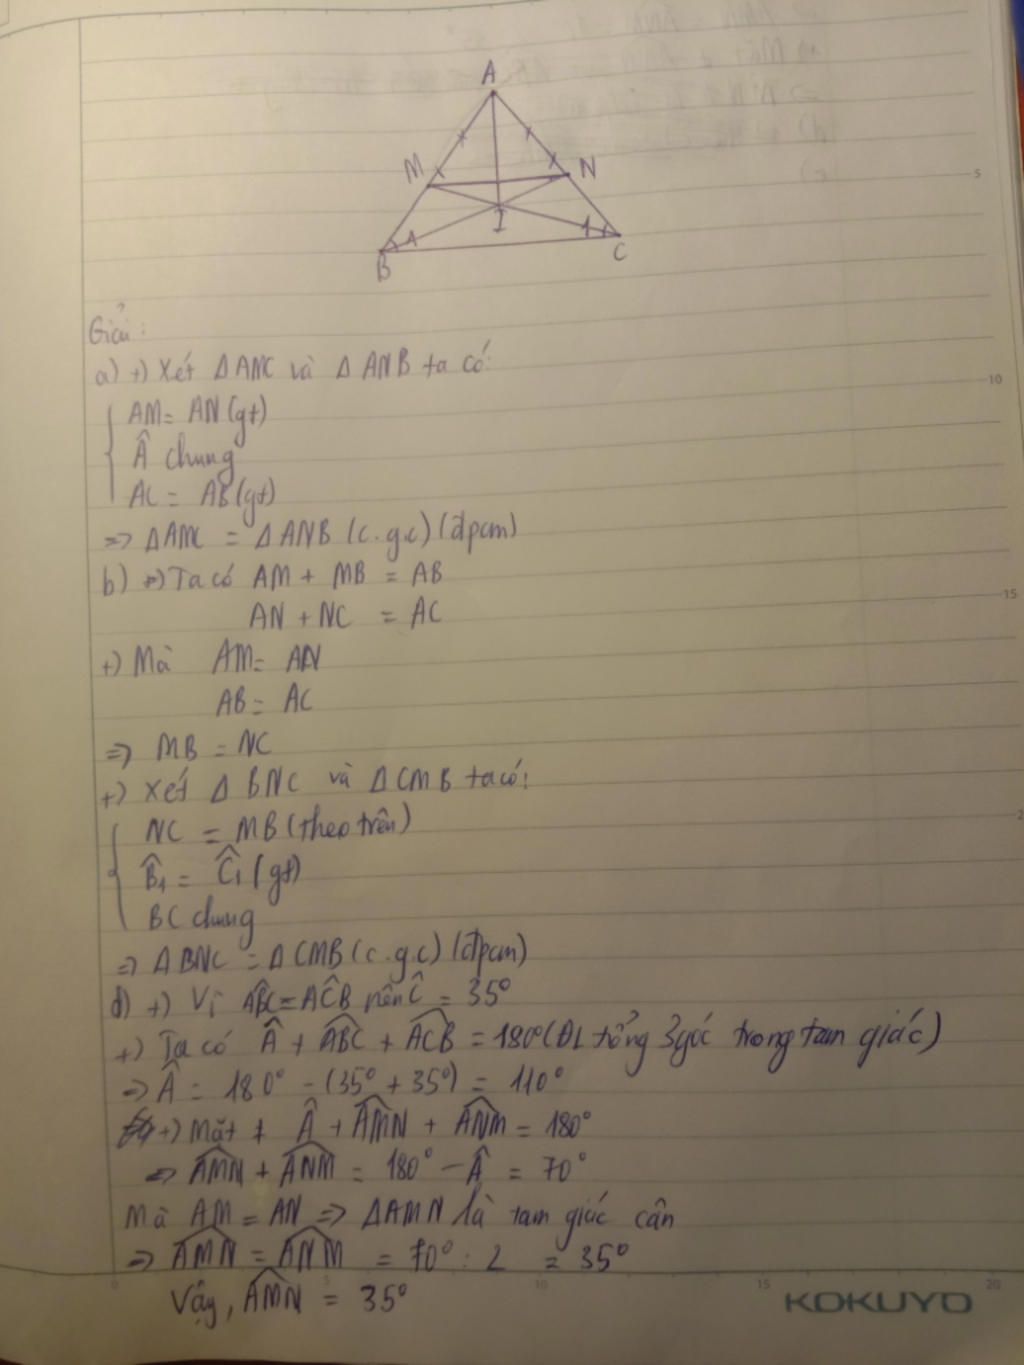 A
M
N
I
1
1
B
C
5
Giải:
a) +) Xét Δ AMC và Δ ANB ta có:
10
AM = AN (gt)
Â chung
AC = AB (gt)
=> Δ AMC = Δ ANB (c.g.c) (đpcm)
b) +) Ta có AM + MB = AB
15
AN + NC = AC
+) Mà AM = AN
AB = AC
=> MB = NC
+) Xét Δ BNC và Δ CMB ta có:
NC = MB (theo trên)
B̂₁ = Ĉ₁ (gt)
BC chung
=> Δ BNC = Δ CMB (c.g.c) (đpcm)
d) +) Vì ABC = ACB nên Ĉ = 35°
+) Ta có Â + ABC + ACB = 180° (ĐL tổng 3 góc trong tam giác)
=> Â = 180° - (35° + 35°) = 110°
+) Mặt ≠ Â + AMN + ANM = 180°
=> AMN + ANM = 180° - Â = 70°
Mà AM = AN => Δ AMN là tam giác cân
=> AMN = ANM = 70° : 2 = 35°
0 5 10 15 20
Vậy, AMN = 35°
KOKUYO